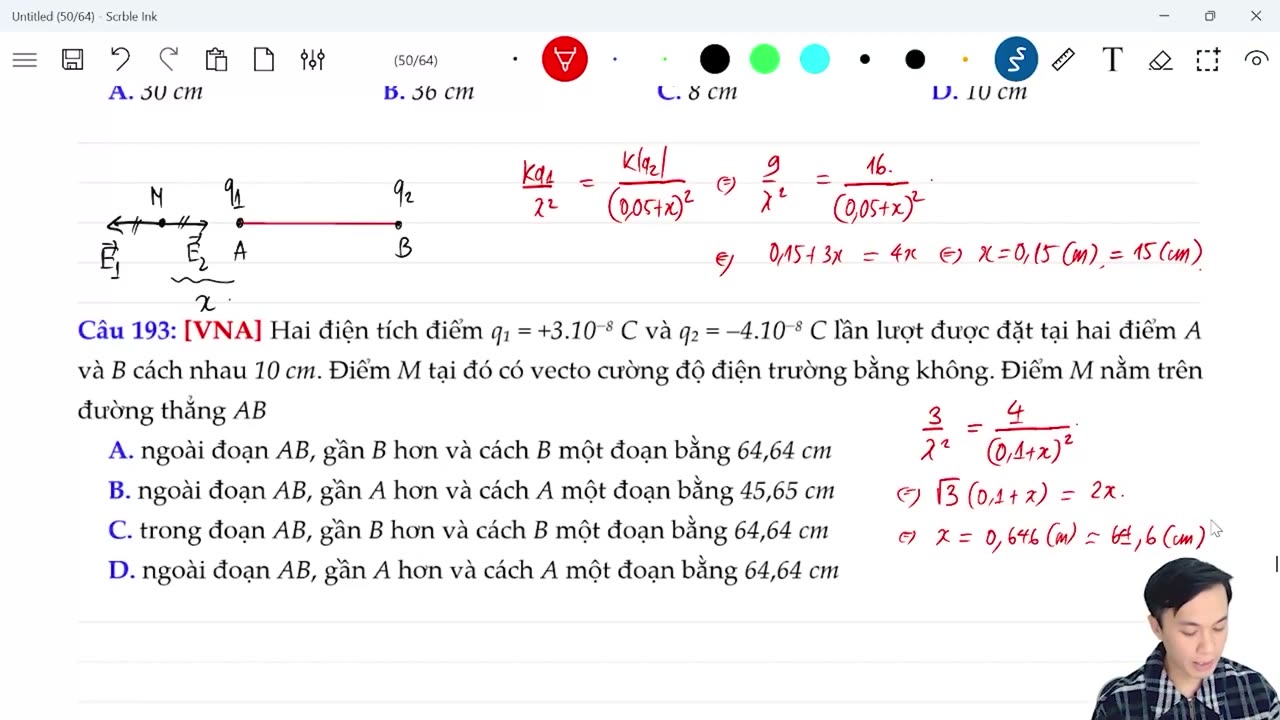 Untitled (50/64) - Scrble Ink
(50/64)
T
A. 30 cm B. 36 cm C. 8 cm D. 10 cm
M q1 q2
E1 E2 A B
x
Kq1/x² = K|q2|/(0,05+x)² ⇔ 9/x² = 16/(0,05+x)²
⇔ 0,15+3x = 4x ⇔ x=0,15(m) = 15(cm)
Câu 193: [VNA] Hai điện tích điểm q₁ = +3.10⁻⁸ C và q₂ = –4.10⁻⁸ C lần lượt được đặt tại hai điểm A
và B cách nhau 10 cm. Điểm M tại đó có vecto cường độ điện trường bằng không. Điểm M nằm trên
đường thẳng AB
A. ngoài đoạn AB, gần B hơn và cách B một đoạn bằng 64,64 cm
B. ngoài đoạn AB, gần A hơn và cách A một đoạn bằng 45,65 cm
C. trong đoạn AB, gần B hơn và cách B một đoạn bằng 64,64 cm
D. ngoài đoạn AB, gần A hơn và cách A một đoạn bằng 64,64 cm
3/x² = 4/(0,1+x)²
⇔ √3(0,1+x) = 2x.
⇔ x = 0,646(m) = 64,6(cm)